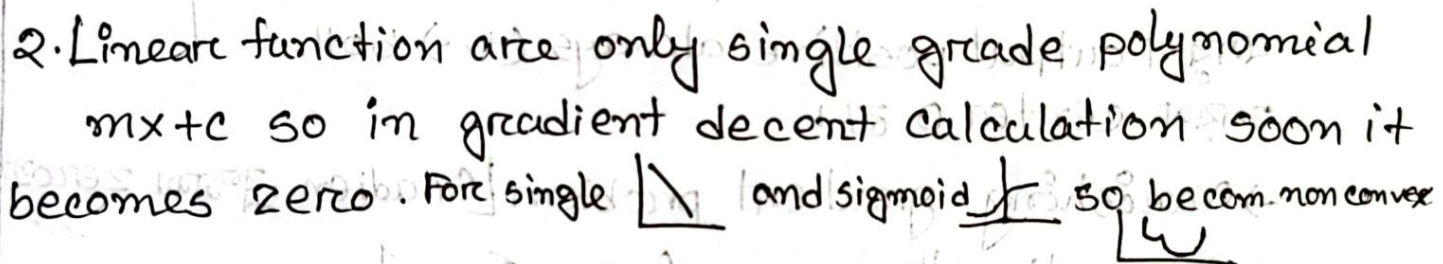 2. Linear function are only single grade polynomial
mx+c so in gradient decent calculation soon it
becomes zero. For single and sigmoid so becom. non convex